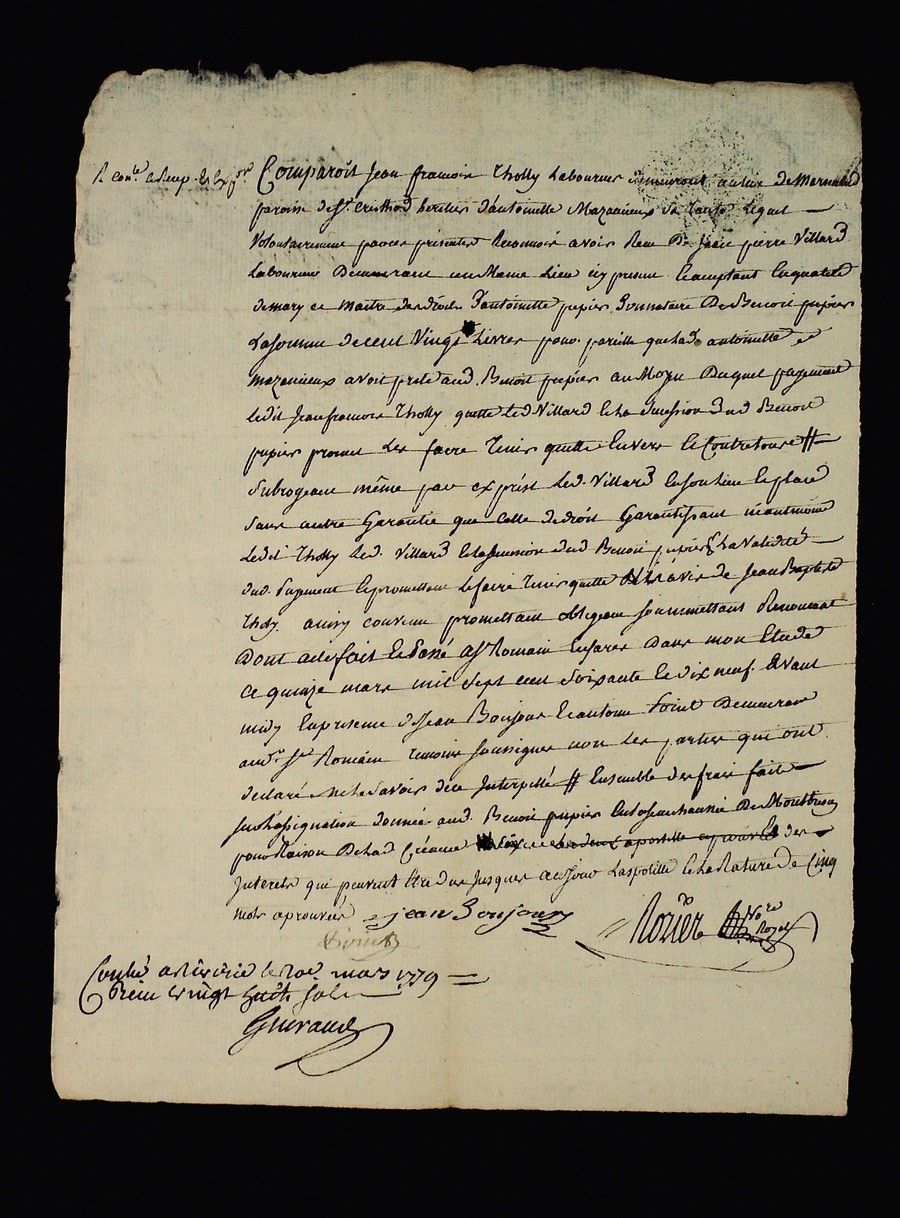 Comparoit Jean francoin Tholly Laboureur demeurant au lieu de Marnand
paroisse de St. cristhod heritier d'antoinette Mazanieux sa tante Lequel
Volontairement par ces presentes Reconnoit avoir Reçu De Jean pierre Villard
Laboureur Demeurant au Meme Lieu icy present Et acceptant En qualité
de mary et maitre des droits d'antoinette pupier Donnataire De Benoit pupier
La somme de cent Vingt Livres pour pareille que Lad. antoinette
mazanieux avoit preté aud. Benoit pupier au Moyen Duquel payement
ledit Jean francois Tholly quitte led Villard et la succession dud Benoit
pupier promet Les faire Tenir quitte Envers Et Contre tous //
Subrogeant même par exprest Led. Villard En son lieu Et place
Sans autre Garantie que Celle de droit Garantissant néantmoins
Ledit Tholly Led. Villard Et la succession dud Benoit pupier La Validité
dud. Payement Et promettant Le faire Tenir quitte de Jean Baptiste
Tholy. ainsy convenu promettant obligeant soummettant Renoncant
Dont acte fait Et Passé a St Romain En farés Dans mon Etude
Ce quinze mars mil sept cent soixante et dix neuf. avant
midy En presence de Jean Bonjour Et antoine Foint Demeurant
aud. St. Romain temoins soussignés non Les parties qui ont
declaré ne le savoir de ce Interpellé // Ensemble des frais fait
sur L'assignation donnée aud. Benoit pupier En la senechaussée De Montbrison
pour Raison De Lad Créance des
Interets qui peuvent Etre dus jusques a ce jour L'apostille Et La Rature de Cinq
mots aprouvés jean Bonjour
Rozier Nore Royal
Conlé a le 20e. mars 1779
Reçu Vingt huit sols
Guiraud